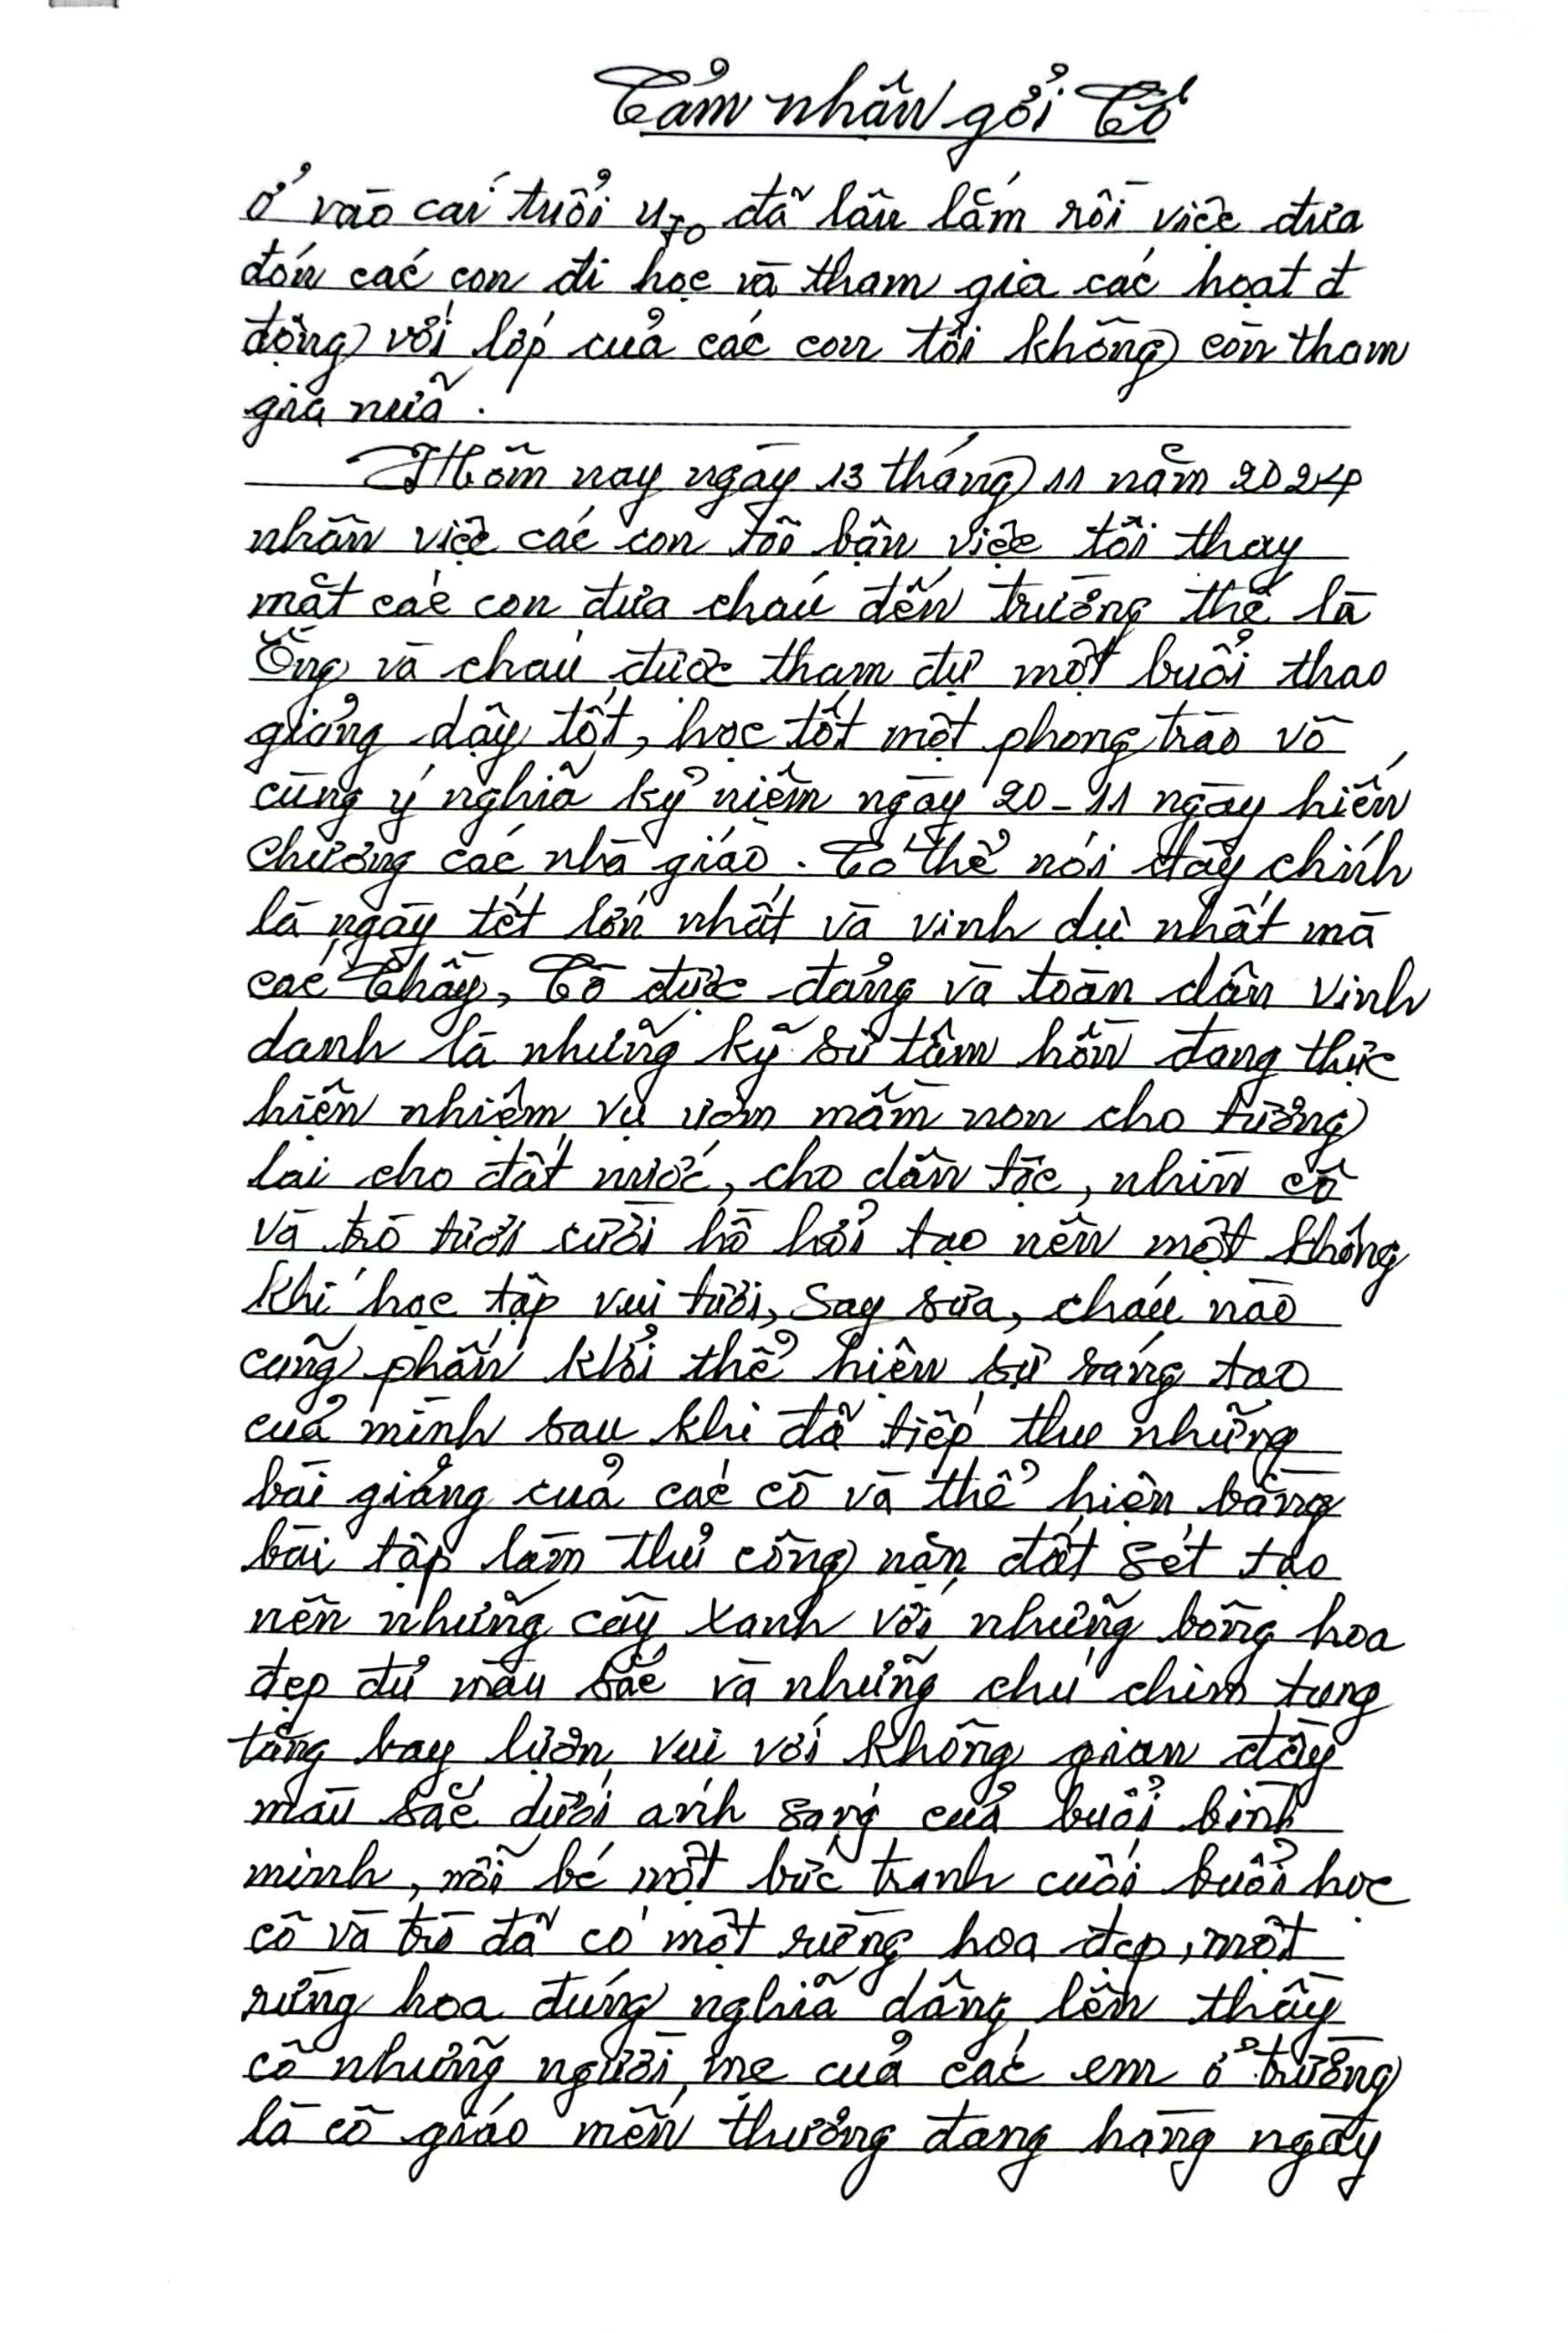 Cảm nhận gởi Cô
Ở vào cái tuổi U70 đã lâu lắm rồi việc đưa
đón các con đi học và tham gia các hoạt đ
động với lớp của các con tôi không còn tham
gia nữa.
Hôm nay ngày 13 tháng 11 năm 2024
nhân việc các con tôi bận việc tôi thay
mặt các con đưa cháu đến trường thế là
Ông và cháu được tham dự một buổi thao
giảng dậy tốt, học tốt một phong trào vô
cùng ý nghĩa kỷ niệm ngày 20-11 ngày hiến
chương các nhà giáo. Có thể nói đây chính
là ngày tết lớn nhất và vinh dự nhất mà
các Thầy, Cô được đảng và toàn dân vinh
danh là những kỹ sư tâm hồn đang thực
hiện nhiệm vụ ươm mầm non cho tương
lai cho đất nước, cho dân tộc, nhìn cô
và trò tươi cười hồ hởi tạo nên một không
khí học tập vui tươi, say sưa, cháu nào
cũng phấn khởi thể hiện sự sáng tạo
của mình sau khi đã tiếp thu những
bài giảng của các cô và thể hiện bằng
bài tập làm thủ công nặn đất sét tạo
nên những cây xanh với những bông hoa
đẹp đủ màu sắc và những chú chim tung
tăng bay lượn vui với không gian đầy
màu sắc dưới ánh sáng của buổi bình
minh, mỗi bé một bức tranh cuối buổi học
cô và trò đã có một rừng hoa đẹp, một
rừng hoa đúng nghĩa dâng lên thầy
cô những người mẹ của các em ở trường
là cô giáo mến thương đang hàng ngày